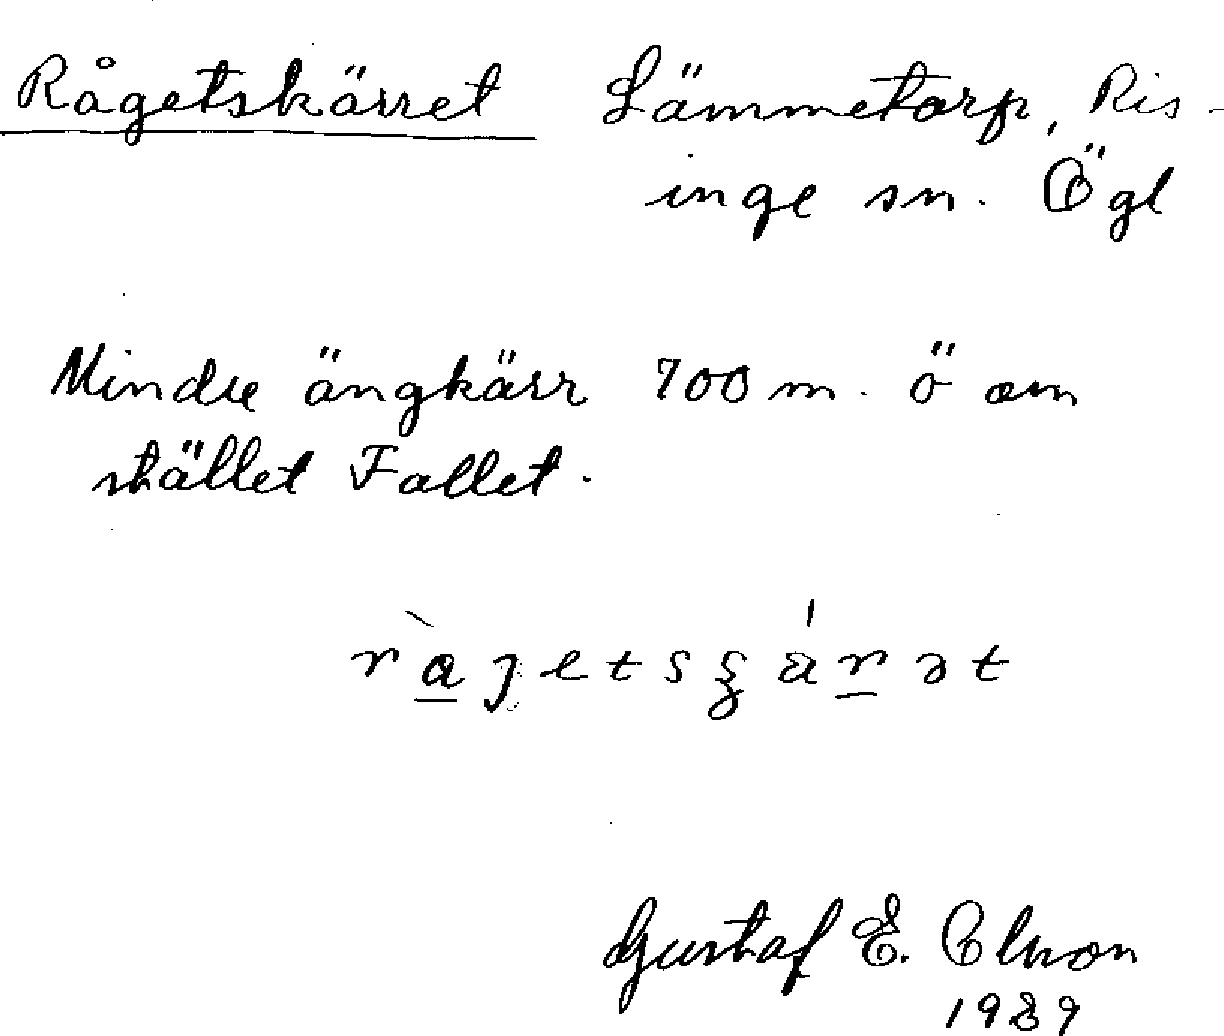 Rågetskärret Lämmetorp, Ris-
inge sn. Ögl
Mindre ängkärr 700 m. ö om
stället Fallet.
Gustaf E. Olsson
1989